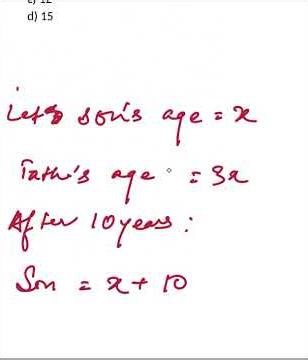 d) 15
Let son's age = x
Fath's age = 3x
After 10 years :
Son = x + 10